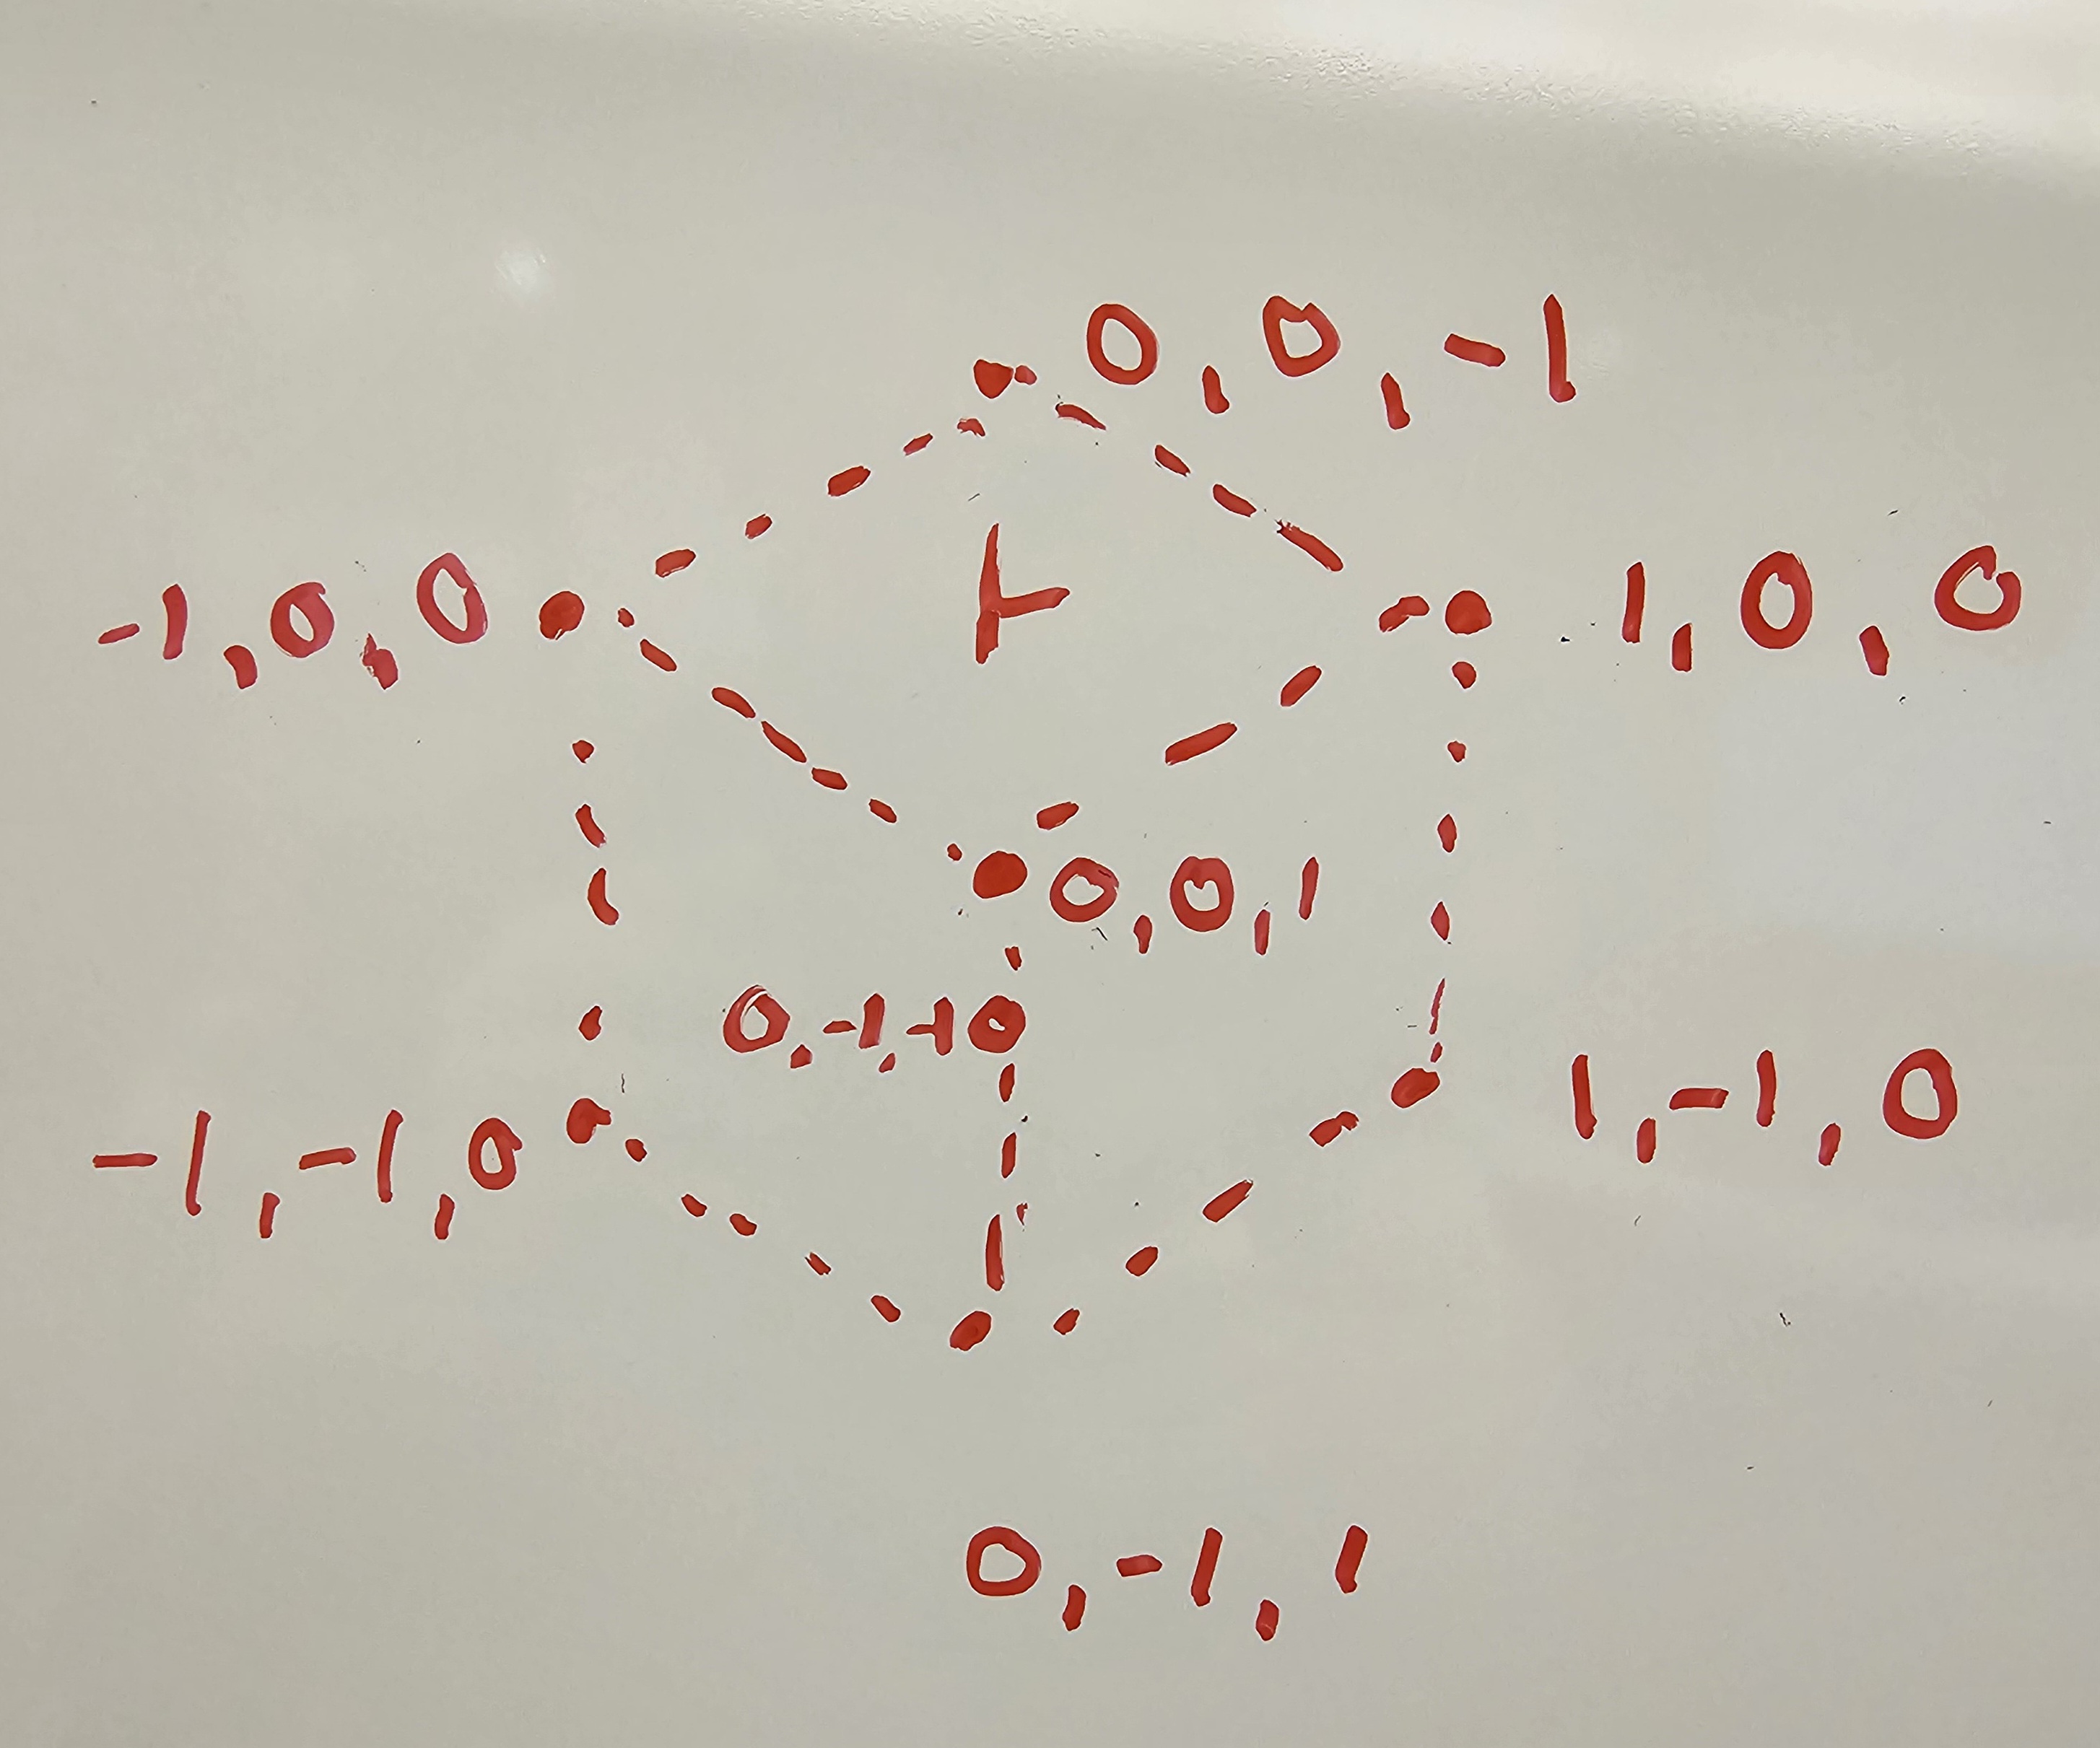 0,0,-1
-1,0,0
1,0,0
0,0,1
0,-1,-1
1,-1,0
-1,-1,0
0,-1,1